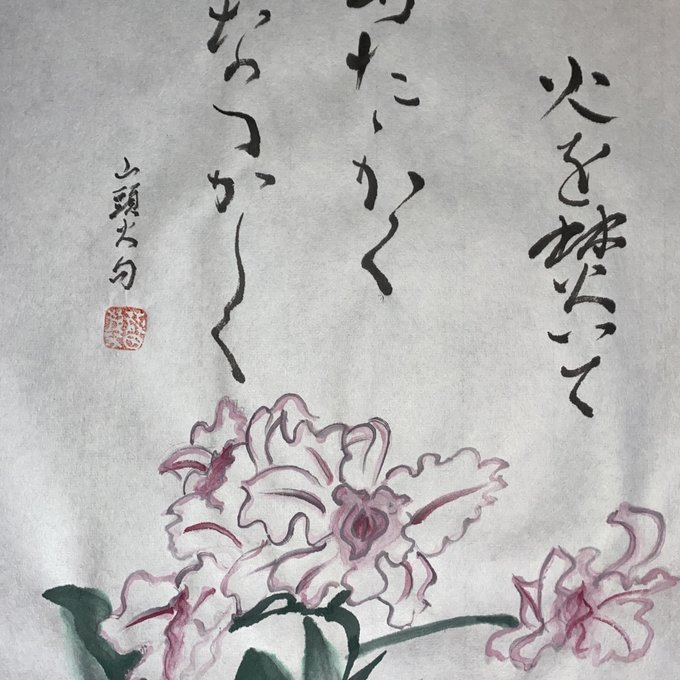 火を焚いて
たゝかく
なつかしく
山頭火句